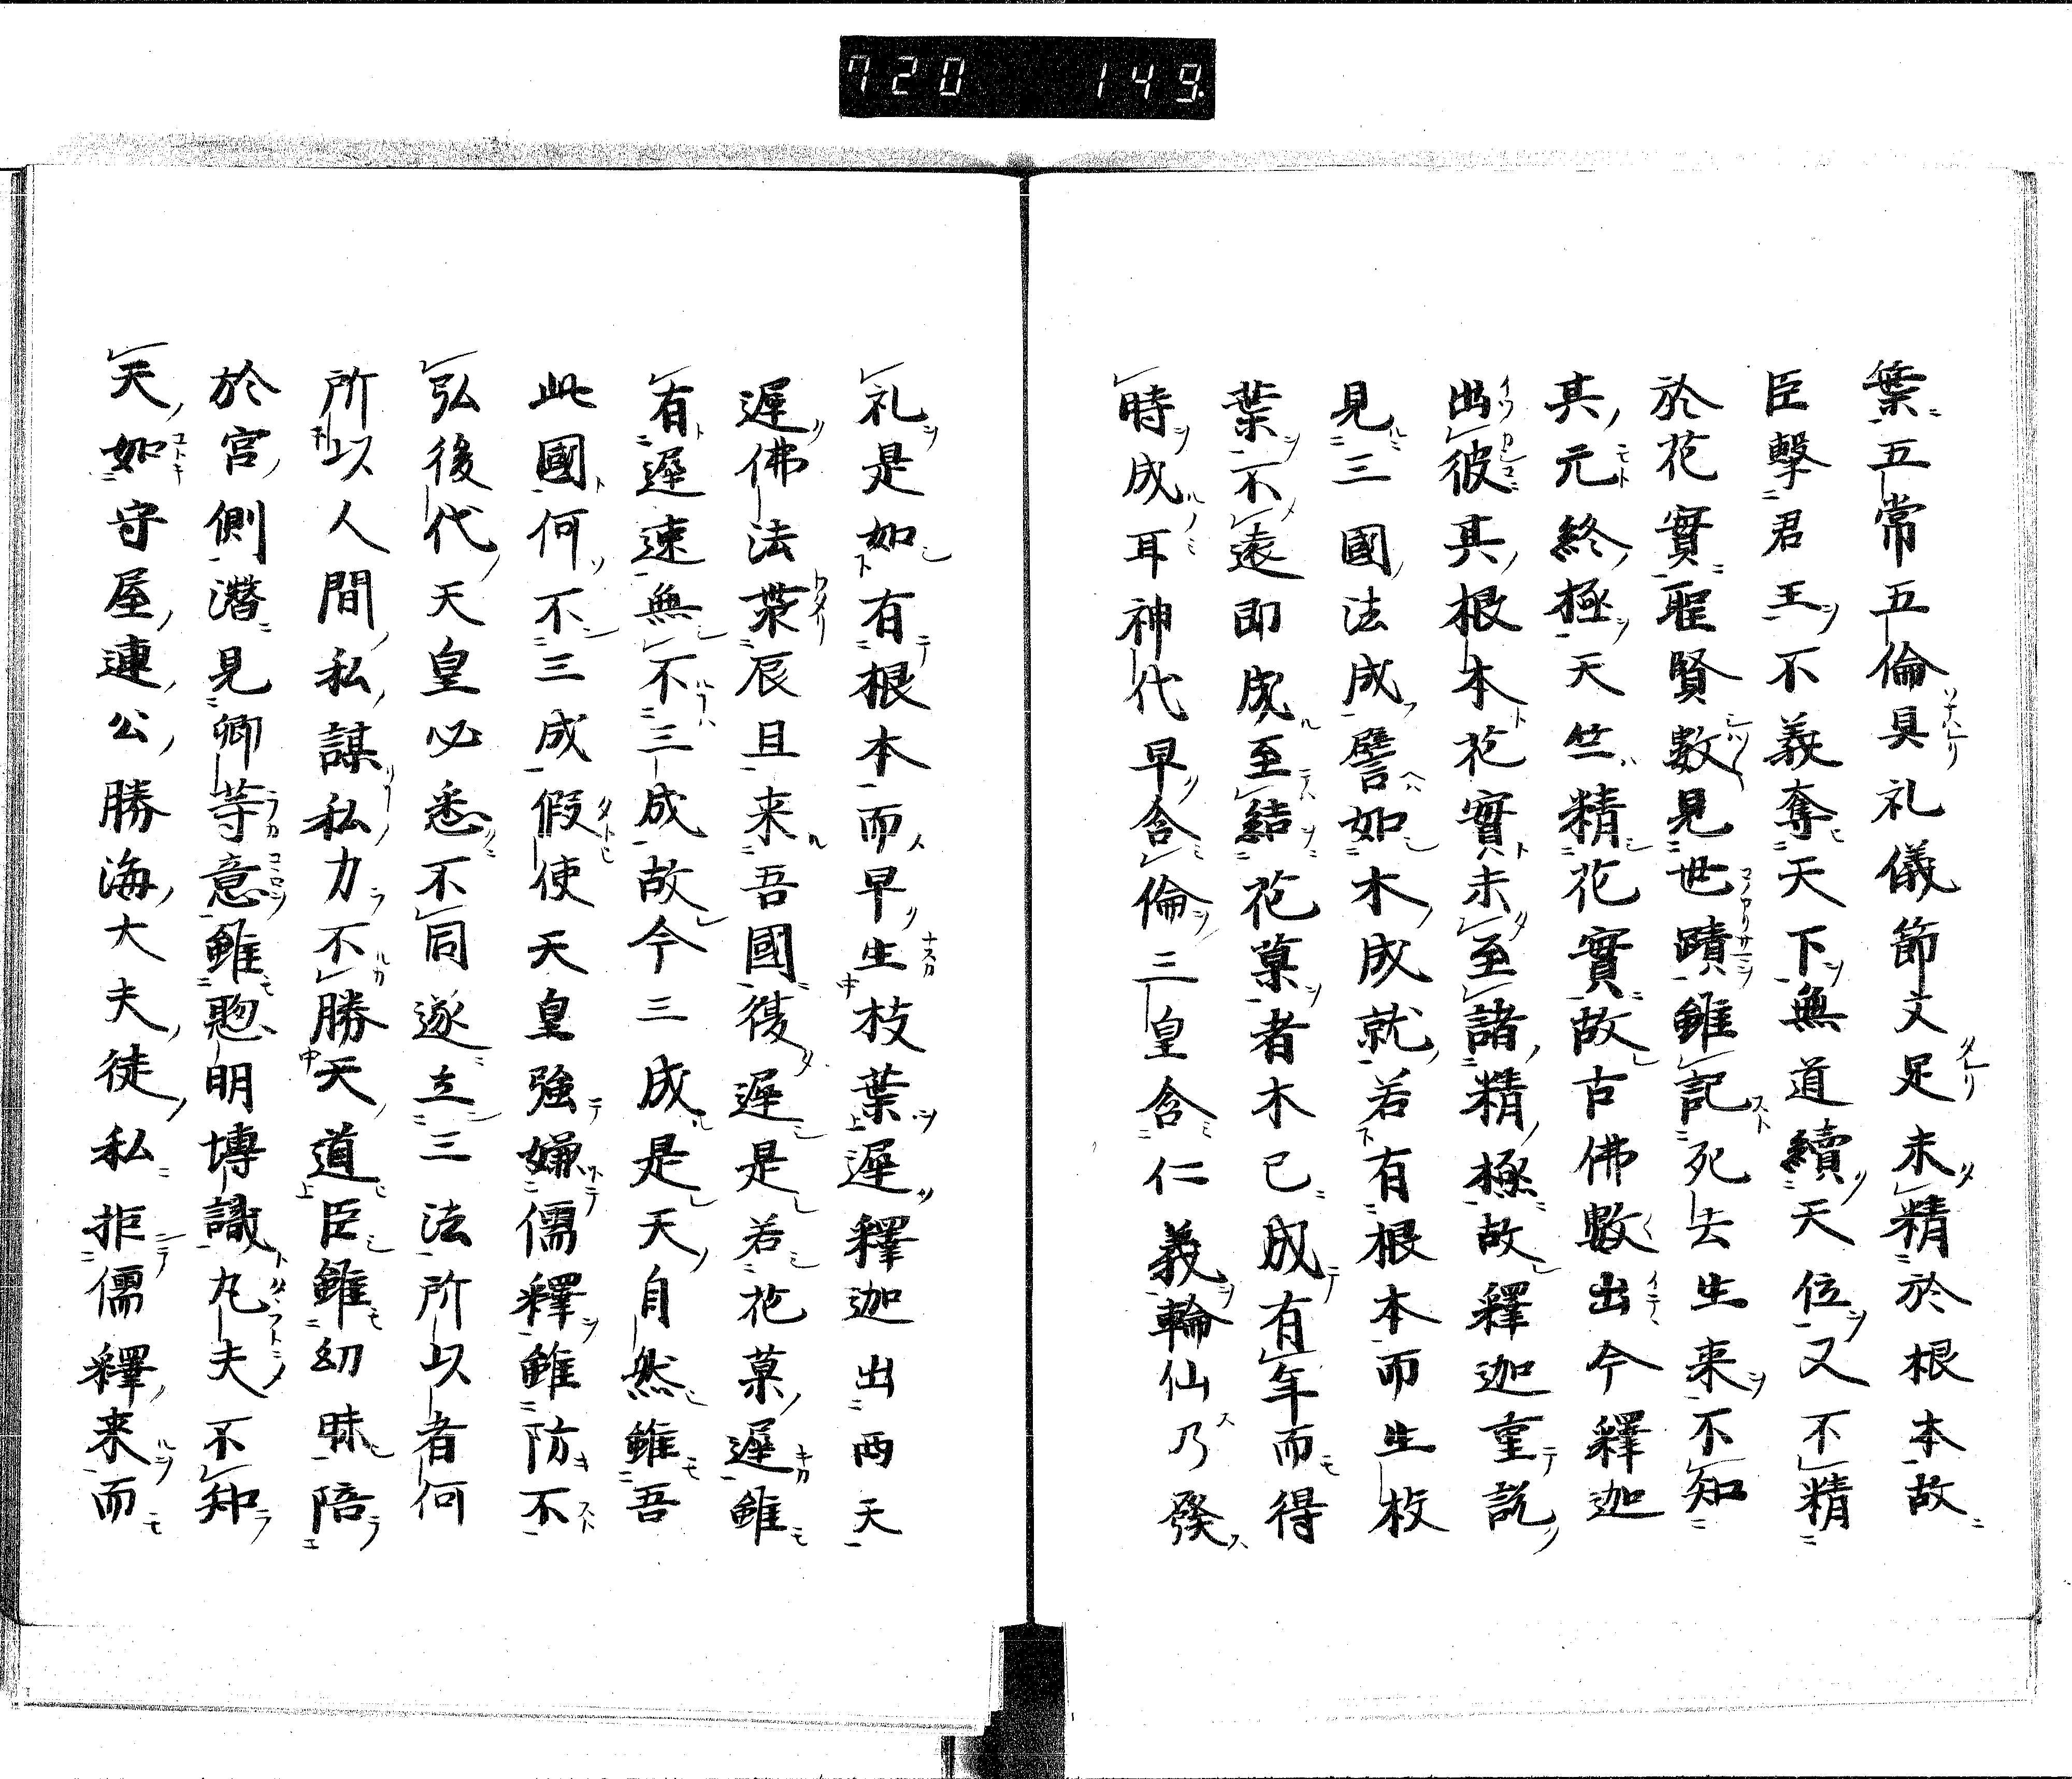 720 149
葉五常五倫具礼儀節文足未精於根本故
臣擊君王不義奪天下無道續天位又不精
於花實聖賢數見世蹟雖記死去生来不知
其元終極天竺精花實故古佛數出今釋迦
出彼其根本花實未至諸精極故釋迦重説
見三國法成譬如木成就若有根本而生枚
葉不遠即成至結花菓者木已成有年而得
時成耳神代早含倫三皇含仁義輪仙乃發
礼是如有根本而早生枝葉遲釋迦出両天
遲佛法葉辰且来吾國復遲是若花菓遲雖
有遲速無不三成故今三成是天自然雖吾
此國何不三成假使天皇強嫌儒釋雖防不
弘後代天皇必悉不同遂立三法所以者何
所以人間私謀私力不勝天道臣雖幼昧陪
於宮側潛見卿等意雖聡明博識凡夫不知
天如守屋連公勝海大夫徒私拒儒釋来而